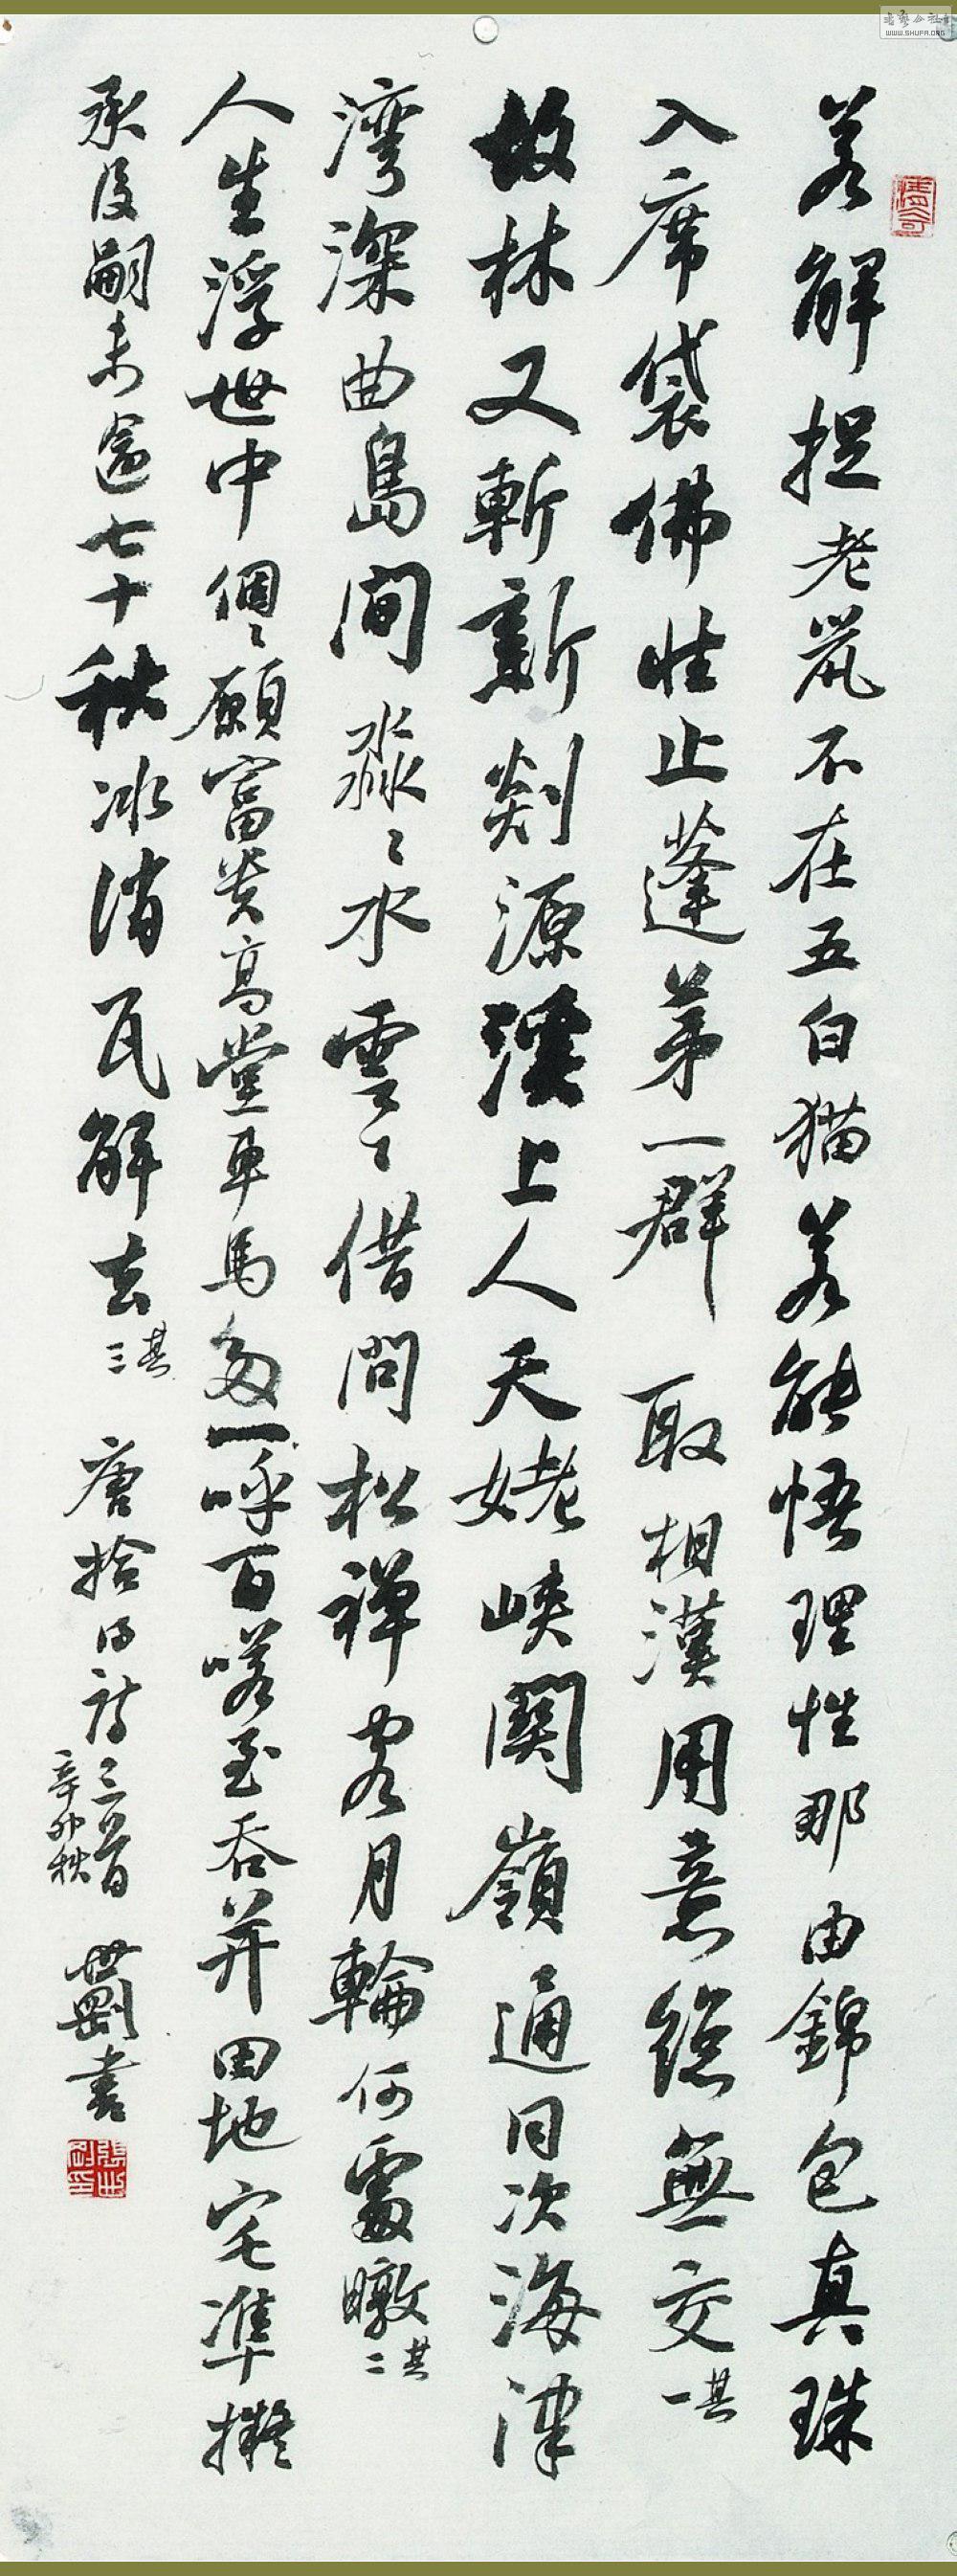 若解捉老鼠不在五白猫若能悟理性那由錦包真珠
入席袋佛性止蓬茅一群取相漢用意總無交其一
故林又斬新剡源溪上人天姥峽關嶺通同次海津
湾深曲島間淼〻水雲〻借問松禅客月輪何處暾其二
人生浮世中個〻願富贵高堂車馬多一呼百喏至吞并田地宅準擬
承後嗣未逾七十秋冰消瓦解去其三
唐拾得詩三首
辛卯秋
世剛書
WWW.SHUFA.ORG